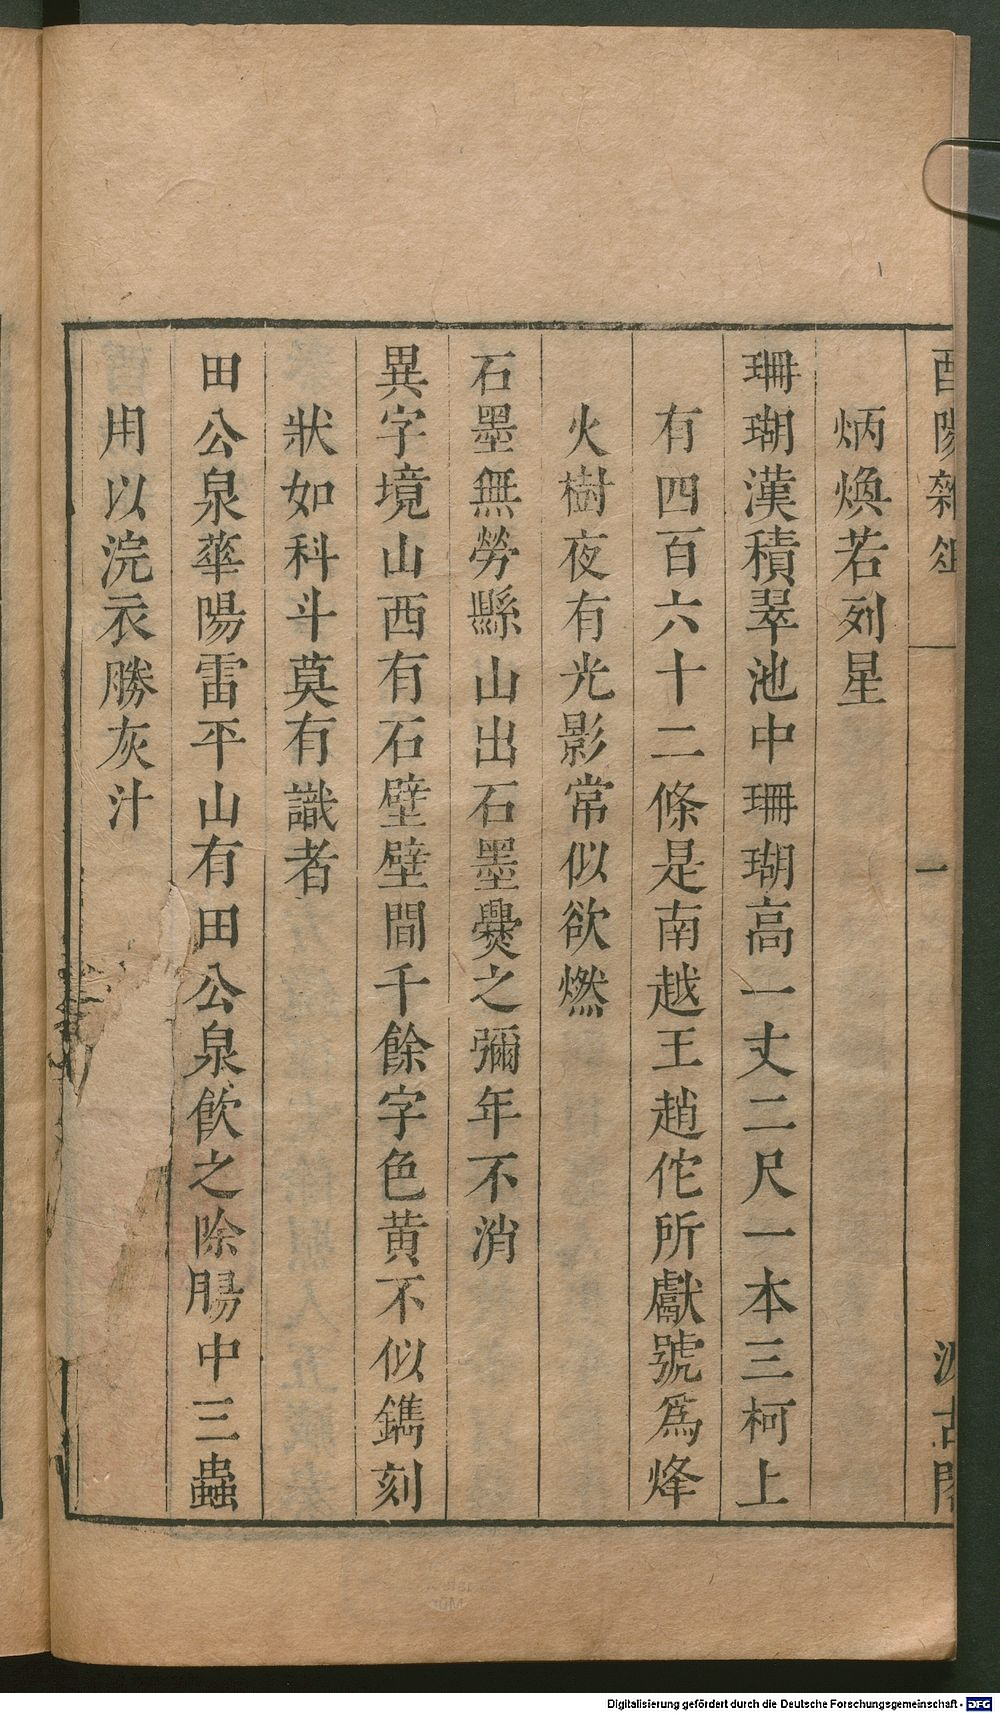 酉陽雜俎
一
汲古閣
炳煥若列星
珊瑚漢積翠池中珊瑚高一丈二尺一本三柯上
有四百六十二條是南越王趙佗所獻號爲烽
火樹夜有光影常似欲燃
石墨無勞縣山出石墨爨之彌年不消
異字境山西有石壁壁間千餘字色黄不似鐫刻
狀如科斗莫有識者
田公泉華陽雷平山有田公泉飲之除腸中三蟲
用以浣衣勝灰汁
Digitalisierung gefördert durch die Deutsche Forschungsgemeinschaft - DFG